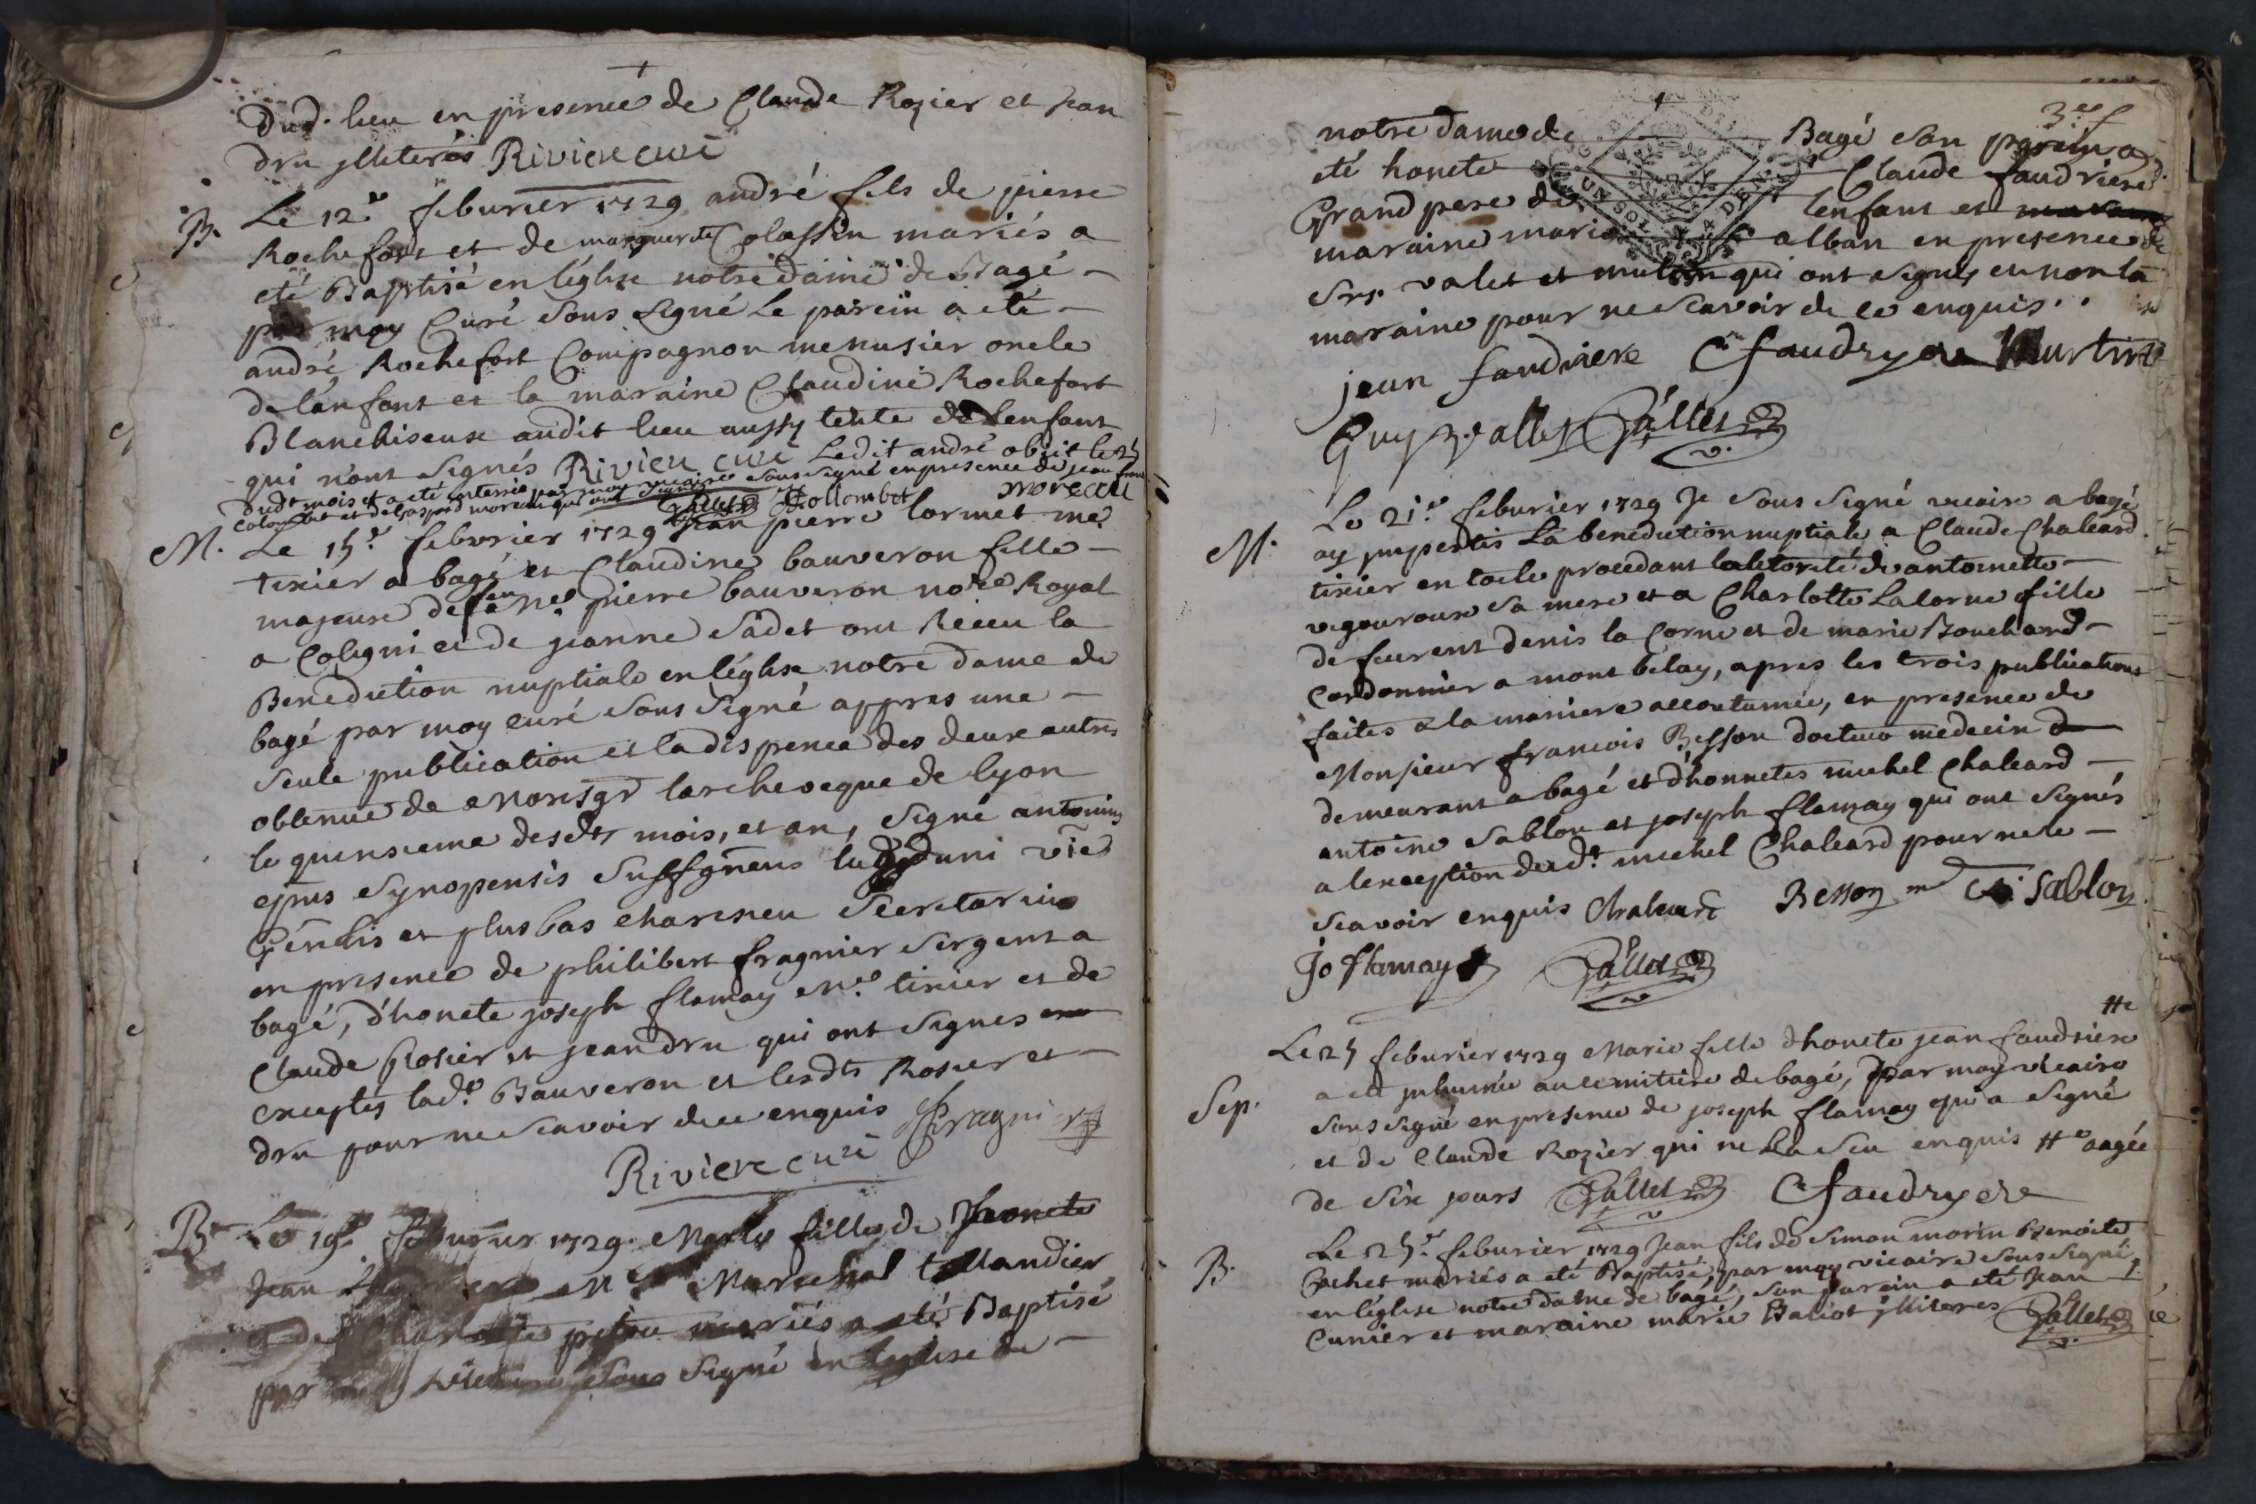 dud. lieu en presence de Claude Rozier et Jean
dru jlliterés Riviere curé
B. Le 12e feburier 1729 andré fils de pierre
Rochefort et de marguerite Colassin mariés a
eté Baptisé en léglise notre dame de Bagé
par moy Curé sous signé le parein a eté
andré Rochefort Compagnon menusier oncle
de lanfant et la maraine Claudine Rochefort
Blanchiseuse audit lieu aussy tente de lenfant
qui n'ont signés Riviere curé Ledit andré obiit le 25
dudt mois et a eté enterré par moy vicaire sous signé en presence de jean franc
Colombet et de gaspard moreau qui ont signés Gallet Collombet moreau
M. Le 15e febvrier 1729 Jean pierre lormet me
tixier a bagé et Claudine bauveron fille
majeure de feu Me pierre bauveron notre Royal
a Coligni et de jeanne Sâdet ont Receu la
Benediction nuptiale en léglise notre dame de
bagé par moy curé sous signé appres une
seule publication et la dispence des deux autres
obtenue de Monsgr larcheveque de lyon
le quensieme desdts mois, et an, signé antonius
epus Synopensis suffgneus lugduni vic
Genlis et plus bas charesieu secretarius
en presence de philibert fragnier sergent a
bagé, d'honete joseph flamay Me tixier et de
Claude Rosier et jean dru qui ont signes
exceptés lade Bauveron et lesdts Rosier et
dru pour ne scavoir de ce enquis Fragnier
Riviere curé
Be Le 19e feburier 1729 fille de honete
Jean Me Marechal tallandier
et de Charlotte pitou mariés a eté Baptisé
par moy vicaire sous signé en leglise de
3e f
notre dame de Bagé son parein a
eté honete Claude faudriere
Grand pere de lenfant et
maraine marie alban en presence de
srs. valet et mulein qui ont signés et non la
maraine pour ne scavoir de ce enquis.
jean faudriere Cfaudryere Murtin
Guy Vallet Gallet
v.
M. Le 21e feburier 1729 Je sous signé vicaire a bagé
ay jmpertis La benediction nuptiale a Claude Chaleard
tixier en toile procedant de lotorité de antoinette
vigouroux sa mere et a Charlotte Lacorne fille
de feu rent denis la Corne et de marie Bouchard
Cordonnier a mont belay, apres les trois publications
faites a la maniere accoutumée, en presence de
Monsieur francois Besson docteur medecin
demeurant a bagé et d'honnetes michel Chaleard
antoine Sablon et joseph flamay qui ont signés
a lexception dudt michel Chaleard pour ne le
scavoir enquis Chaleard Besson m A Sablon
jo flamay Gallet
v
##e
Sep. Le 25 feburier 1729 Marie fille dhonete jean faudriere
a eté jnhumée au cemitiere de bagé, par moy vicaire
sous signé en presence de joseph flamay qui a signé
et de Claude Rozier qui ne La sceu enquis ##e aagée
de six jours Gallet Cfaudryere
v
B. Le 25e feburier 1729 Jean fils de Simon morin Benoite
Cachet mariés a eté Baptisé, par moy vicaire sous signé
en léglise notre dame de bagé, son parain a eté Jean
Cunier et maraine marie Baliot jlliteres Gallet
v.